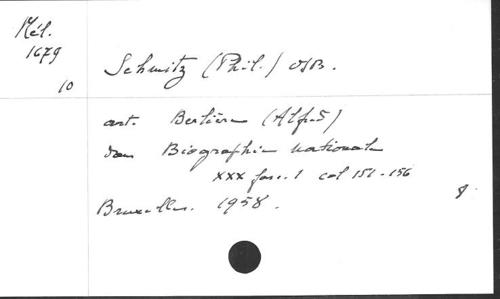 Mél.
1679
10
Schmitz (Phil.) OSB.
art. Berlière (Alfred)
dans Biographie nationale
XXX fasc. 1 col 151-156
Bruxelles. 1958.